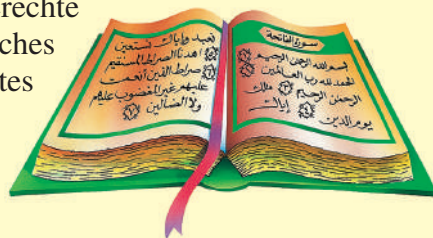 rechte
ches
tes
سورة الفاتحة
بسم الله الرحمن الرحيم
الحمد لله رب العالمين
الرحمن الرحيم مالك
يوم الدين إياك
نعبد وإياك نستعين
اهدنا الصراط المستقيم
صراط الذين أنعمت
عليهم غير المغضوب عليهم
ولا الضالين